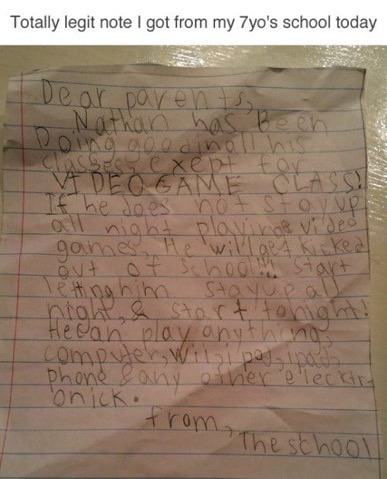 Totally legit note I got from my 7yo's school today
Dear parents,
Nathan has Been
Doing good in all his
classes, exept for
VIDEO GAME CLASS!
If he does not stay up
all night playing video
games, He will get kicked
out of school!!! Start
letting him stay up all
night, & start tonight!
He can play anything,
computer, wii, i pod, ipad,
phone & any other electr
onick.
from,
The school